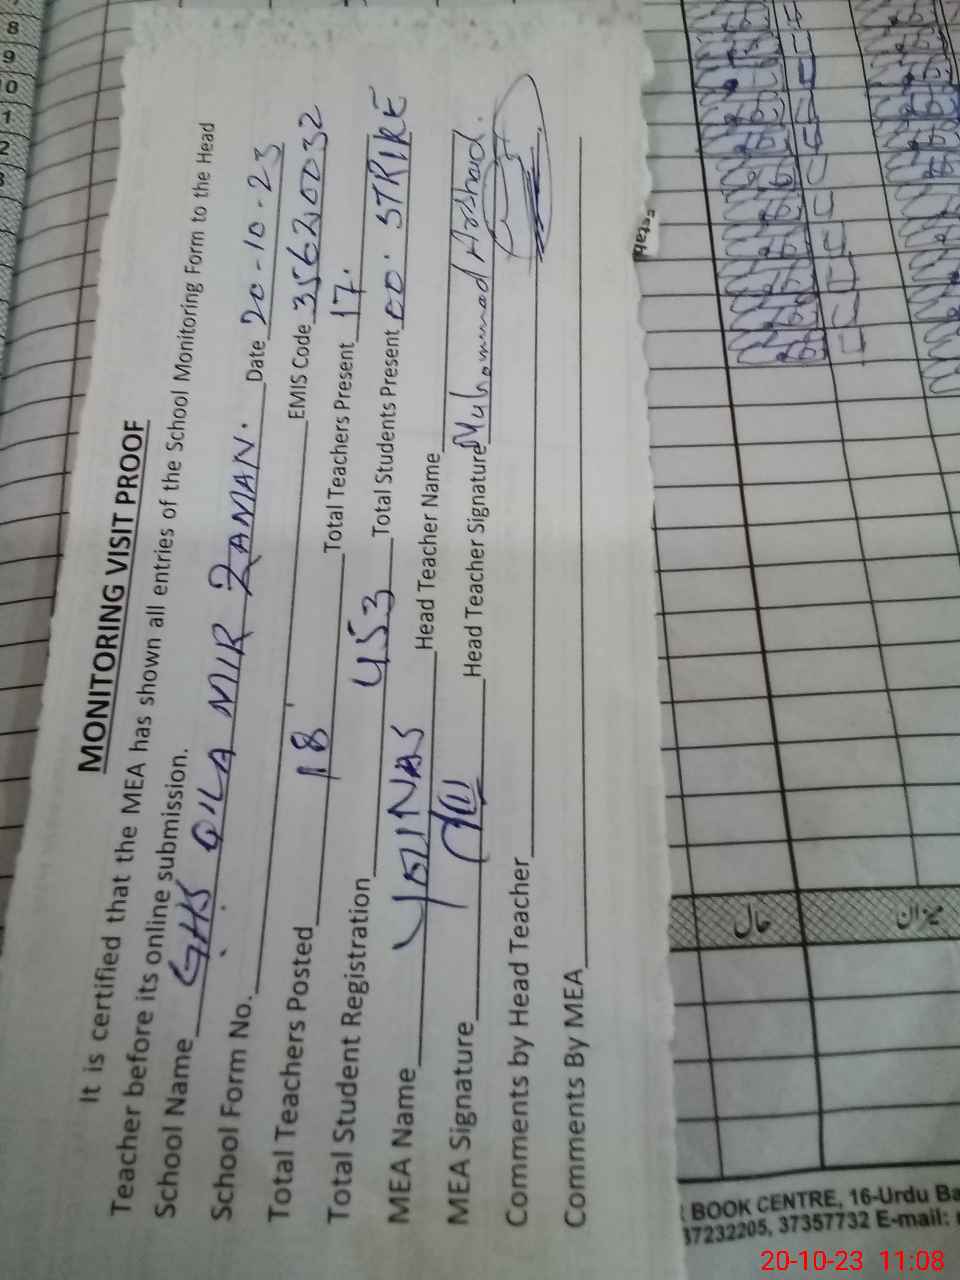 MONITORING VISIT PROOF
It is certified that the MEA has shown all entries of the School Monitoring Form to the Head
Teacher before its online submission.
School Name GHS QILA MIR ZAMAN. Date 20-10-23
School Form No. EMIS Code 35620032
Total Teachers Posted 18 Total Teachers Present 17.
Total Student Registration 453 Total Students Present 00. STRIKE
MEA Name YOUNAS Head Teacher Name
MEA Signature Head Teacher Signature Muhammad Arshad.
Comments by Head Teacher
Comments By MEA
حال
میزان
BOOK CENTRE, 16-Urdu Ba
37232205, 37357732 E-mail:
20-10-23 11:08
8
9
4
4
4
4
4
4
4
4
4
4
4